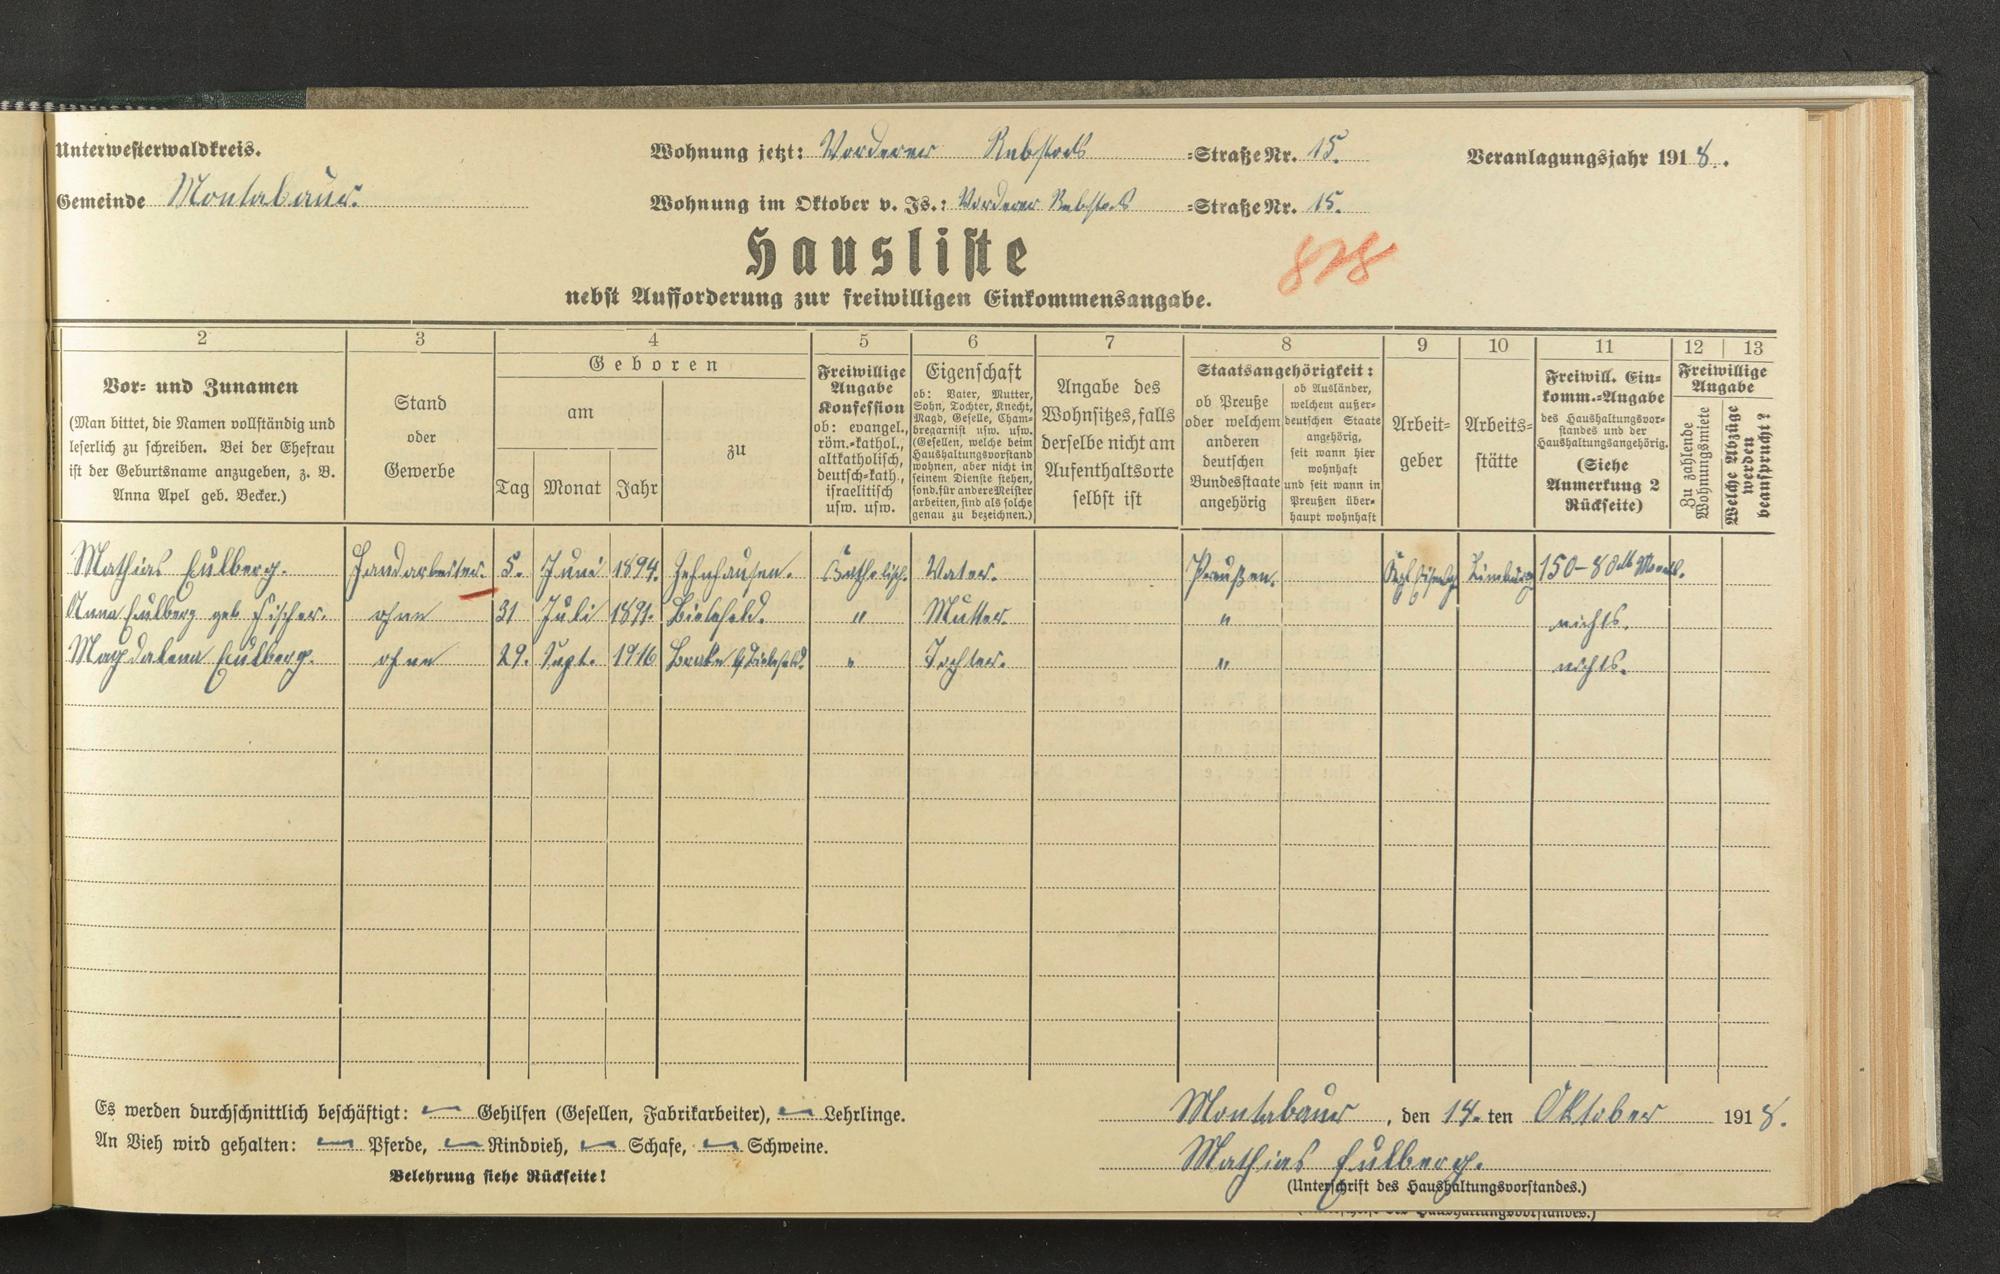 Unterwesterwaldkreis.
Wohnung jetzt: Vorderer Rebstock =Straße Nr. 15.
Veranlagungsjahr 1918.
Gemeinde Montabaur.
Wohnung im Oktober v. Js.: Vorderer Rebstock =Straße Nr. 15.
Hausliste
828
nebst Aufforderung zur freiwilligen Einkommensangabe.
2 3 4 5 6 7 8 9 10 11 12 13
Vor= und Zunamen
(Man bittet, die Namen vollständig und
leserlich zu schreiben. Bei der Ehefrau
ist der Geburtsname anzugeben, z. B.
Anna Apel geb. Becker.)
Stand
oder
Gewerbe
Geboren
am
Tag Monat Jahr
zu
Freiwillige
Angabe
Konfession
ob: evangel.,
röm.=kathol.,
altkatholisch,
deutsch=kath.,
israelitisch
usw. usw.
Eigenschaft
ob: Vater, Mutter,
Sohn, Tochter, Knecht,
Magd, Geselle, Cham=
bregarnist usw. usw.
(Gesellen, welche beim
Haushaltungsvorstand
wohnen, aber nicht in
seinem Dienste stehen,
sond. für andere Meister
arbeiten, sind als solche
genau zu bezeichnen.)
Angabe des
Wohnsitzes, falls
derselbe nicht am
Aufenthaltsorte
selbst ist
Staatsangehörigkeit:
ob Preuße
oder welchem
anderen
deutschen
Bundesstaate
angehörig
ob Ausländer,
welchem außer=
deutschen Staate
angehörig,
seit wann hier
wohnhaft
und seit wann in
Preußen über=
haupt wohnhaft
Arbeit=
geber
Arbeits=
stätte
Freiwill. Ein=
komm.=Angabe
des Haushaltungsvor=
standes und der
Haushaltungsangehörig.
(Siehe
Anmerkung 2
Rückseite)
Freiwillige
Angabe
Zu zahlende
Wohnungsmiete
Welche Abzüge
werden
beansprucht?
Mathias Eulberg. Handarbeiter. 5. Juni 1894. Hehnhausen. Katholisch. Vater. Preußen. Limburg 150-80 M Monatl.
Anna Eulberg geb. Fischer. ohne 31 Juli 1891. Bielefeld. " Mutter. " nichts.
Magdalena Eulberg. ohne 29. Sept. 1916 Brake b/Bielefeld. " Tochter. " nichts.
Es werden durchschnittlich beschäftigt: — Gehilfen (Gesellen, Fabrikarbeiter), — Lehrlinge.
An Vieh wird gehalten: — Pferde, — Rindvieh, — Schafe, — Schweine.
Belehrung siehe Rückseite!
Montabaur, den 14. ten Oktober 1918.
Mathias Eulberg.
(Unterschrift des Haushaltungsvorstandes.)